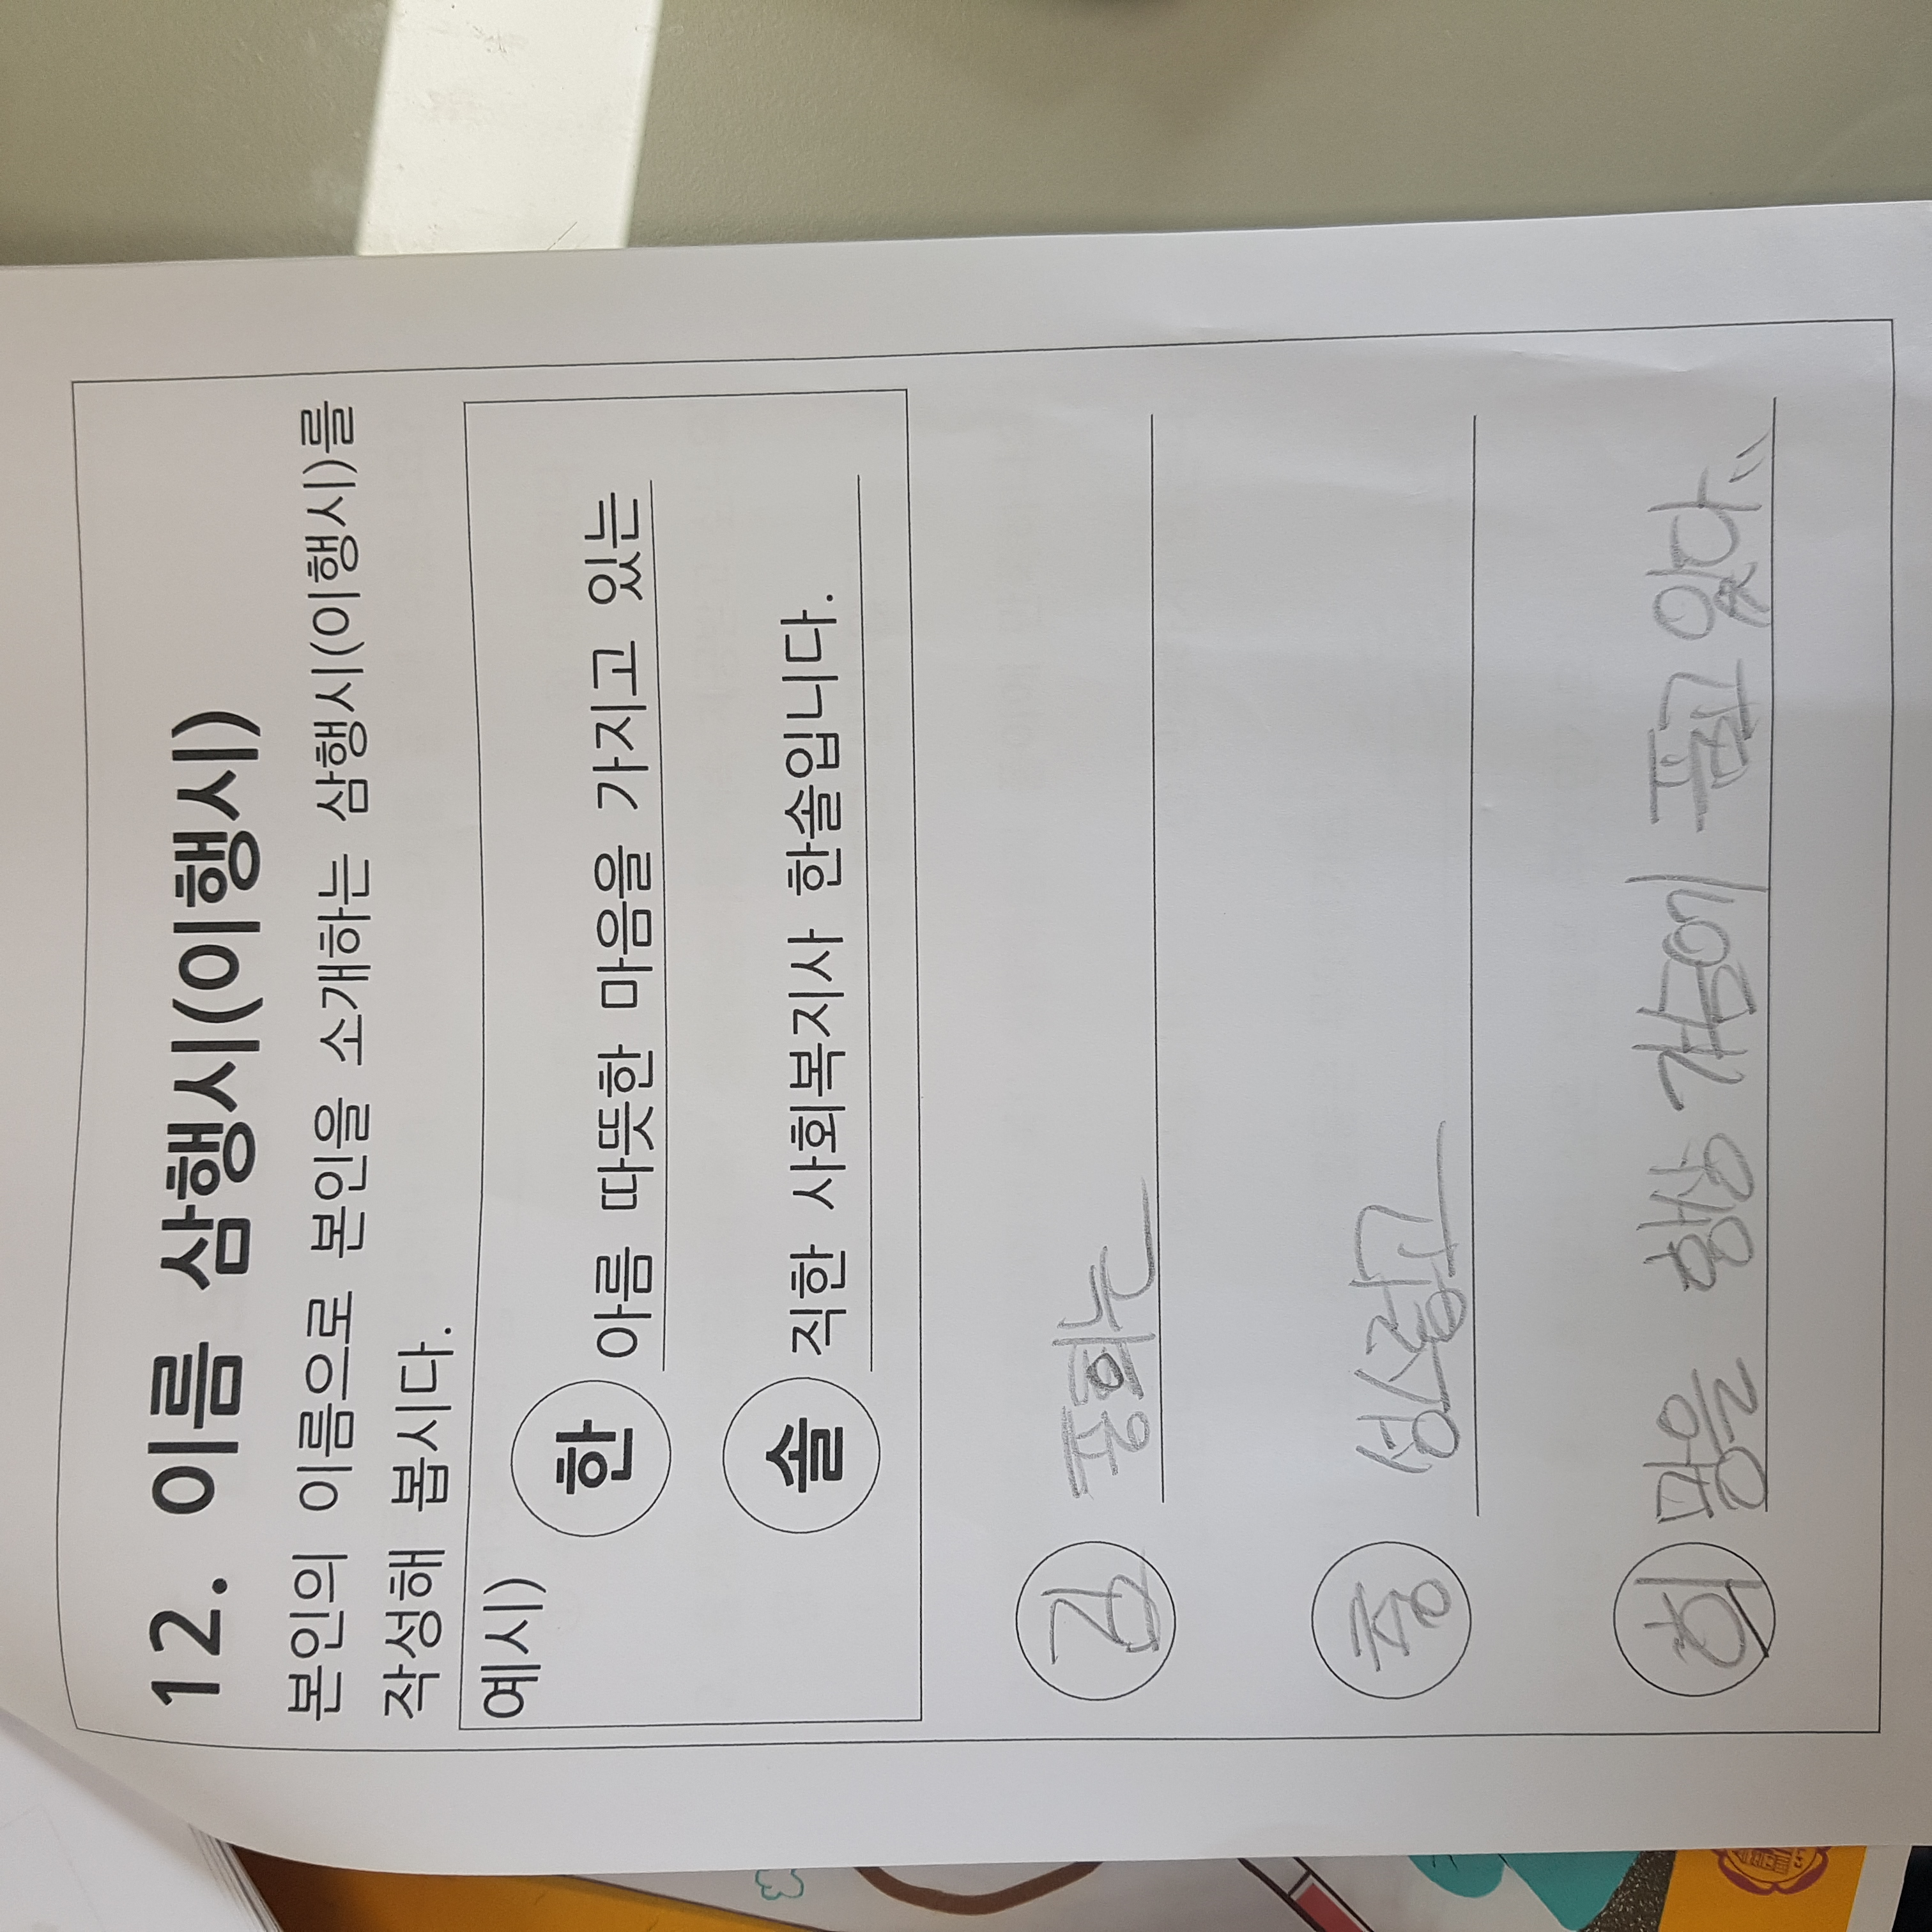 12. 이름 삼행시(이행시)
본인의 이름으로 본인을 소개하는 삼행시(이행시)를
작성해 봅시다.
예시)
한 아름 따뜻한 마음을 가지고 있는
솔 직한 사회복지사 한솔입니다.
김
종
항상 가슴에 품고 있다.